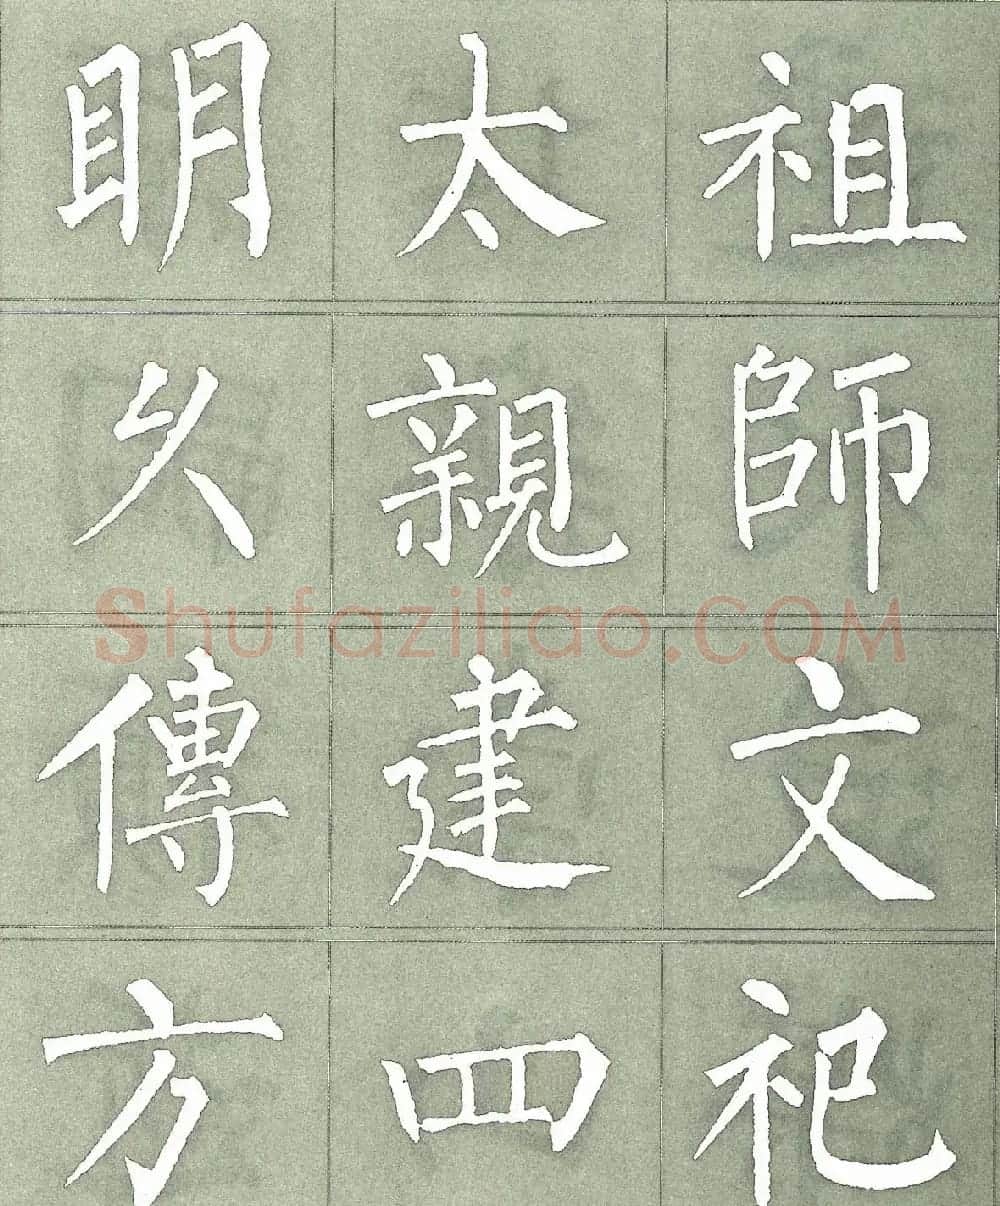 明太祖
久親師
Shufaziliao.COM
傳建文
方四祀